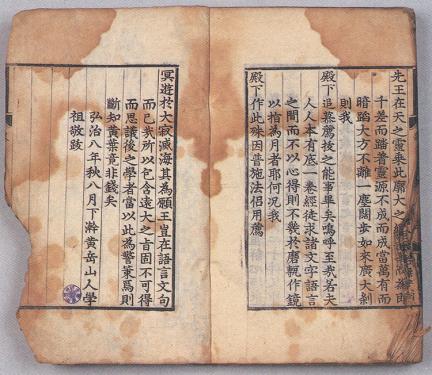 先王在天之靈乘此願大之
千差而踏普靈源不成而成當萬有而
暗蹈大方不離一塵闊步如來廣大剎
則我
殿下追薦拔之能事畢矣嗚呼至我若夫
人人本有底一卷經徒求諸文字語言
之間而不以心得則不幾於磨甎作鏡
以指為月者耶何況我
殿下作此殊因普施法侶用薦
冥遊於大寂滅海其為願王豈在語言文句
而已我所以包含遠大之旨固不可得
而思議後之學者當以此為警策焉則
斷知黃葉竟非錢矣
弘治八年秋八月下澣黃岳山人學
祖敬跋